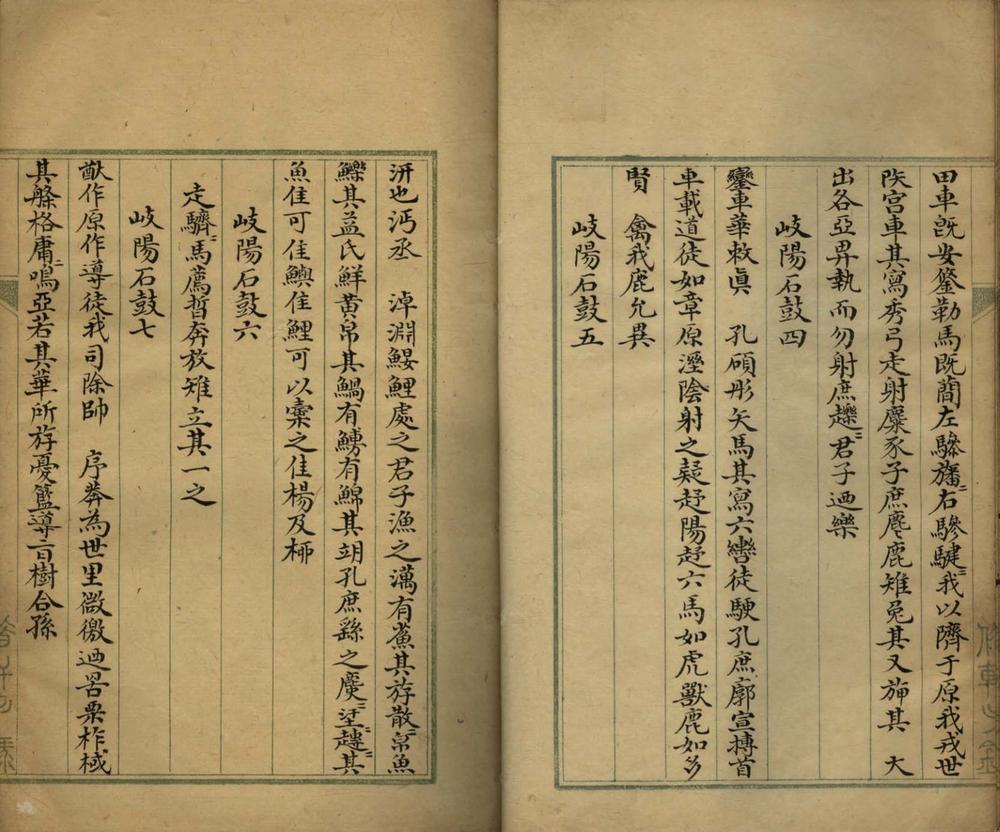 田車既安鋚勒馬既蕳左驂旛〻右驂騝〻我以隮于原我戎世
陕宫車其寫秀弓走射麋豕子庶麀鹿雉兔其又旆其　大
出各亞昇執而勿射庶趮〻君子迺樂
岐陽石鼓四
鑾車華敕眞　孔碩彤矢馬其寫六轡徒駛孔庶廓宣搏首
車載道徒如章原溼陰射之趍陽趍六馬如虎獸鹿如多
賢　禽我鹿允異
岐陽石鼓五
汧也沔丞　淖淵鰋鯉處之君子漁之澫有鯊其斿散〻帛魚
鱳其益氏鮮黄帛其鯿有鰟有鯞其孔庶臠之其
魚隹可隹鱮隹鯉可以橐之隹楊及柳
岐陽石鼓六
走驕〻馬薦晢奔放雉立其一之
岐陽石鼓七
猷作原作導徒我司除帥　序莽為世里微徼迺罟栗柞棫
其格庸〻鳴亞若其華所斿憂導二百樹合孫